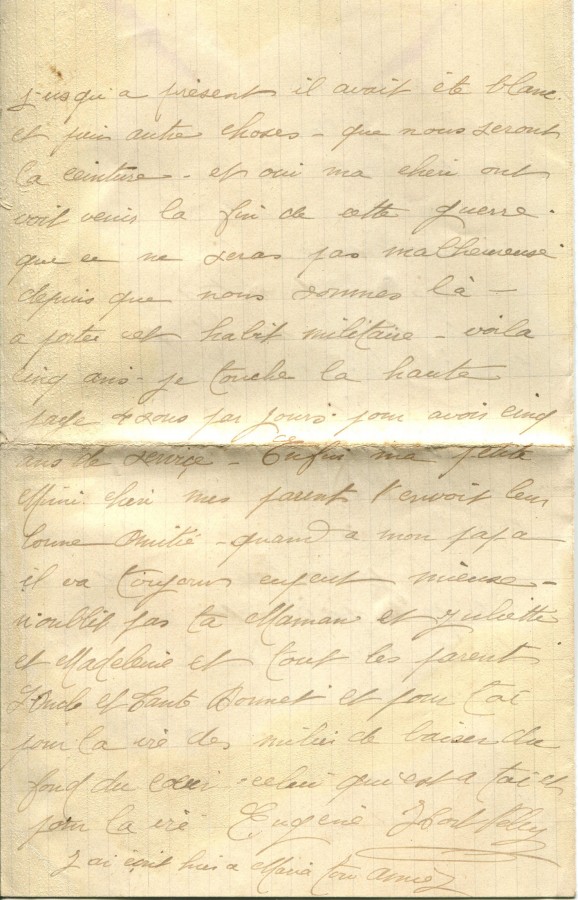 jusqu'a présent il avait été blanc.
et puis autre choses - que nous seront
la ceinture - et oui ma cheri ont
voit venir la fin de cette guerre.
que ce ne seras pas malheureuse
depuis que nous sommes là -
a porter cet habit militaire - voila
cinq ans - je touche la haute
paye 4 sous par jours. pour avoir cinq
ans de service - Enfin ma petite
Mimi cheri mes parent t'envoit leur
bonne Amitié - quand a mon papa
il va toujours en peut mieuse -
n'oublit pas ta Maman et Juliette
et Madeleine et tout les parent
L'Oncle et Tante Bonnet et pour toi
pour la vie des milier de baiser du
fond du cœur - celui qui est a toi et
pour la vie Eugène
J'ai écrit hier a Maria ton amie